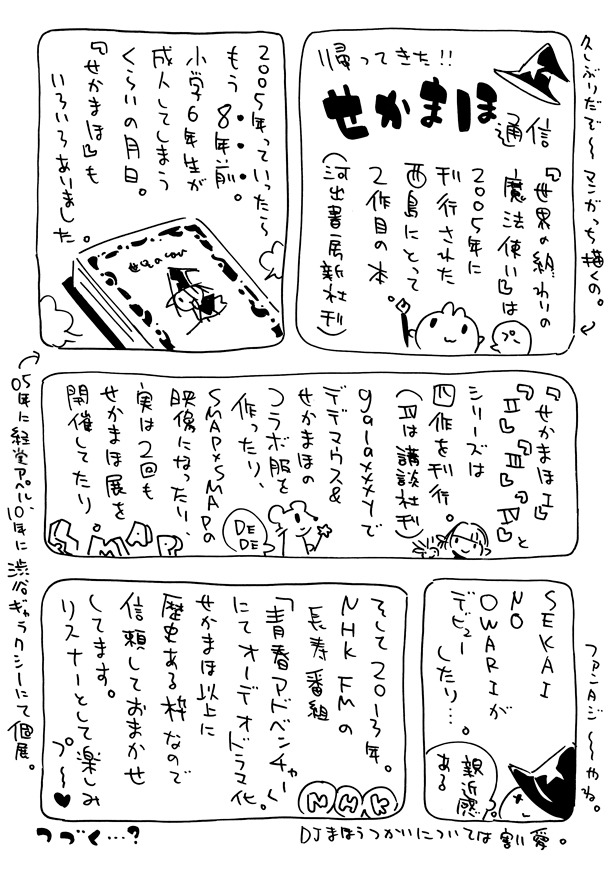 久しぶりだぞ〜マンガっち描くの。
帰ってきた!!
せかまほ
通信
『世界の終わりの
魔法使い』は
2005年に
刊行された
西島にとって
2作目の本。
(河出書房新社刊)
プー
2005年っていったら〜
もう8年前。
小学6年生が
成人してしまう
くらいの月日。
『せかまほ』も
いろいろありました。
『せかまほⅠ』
『Ⅱ』『Ⅲ』『Ⅳ』と
シリーズは
四作を刊行。
(Ⅳは講談社刊)
galaxxxyで
デデマウス&
せかまほの
コラボ服を
作ったり、
SMAP×SMAPの
映像になったり、
実は2回も
せかまほ展を
開催してたり。
DE
DE
SMAP
05年に経堂アペル、10年に渋谷ギャラクシーにて個展。
SEKAI
NO
OWARIが
デビュー
したり…。
親近感
ある
ファンタジ〜〜やね。
そして2013年。
NHK FMの
長寿番組
「青春アドベンチャー」
にてオーディオドラマ化。
せかまほ以上に
歴史ある枠なので
信頼しておまかせ
してます。
リスナーとして楽しみ
プ〜♥
NHK
DJまほうつかいについては割愛。
つづく…?